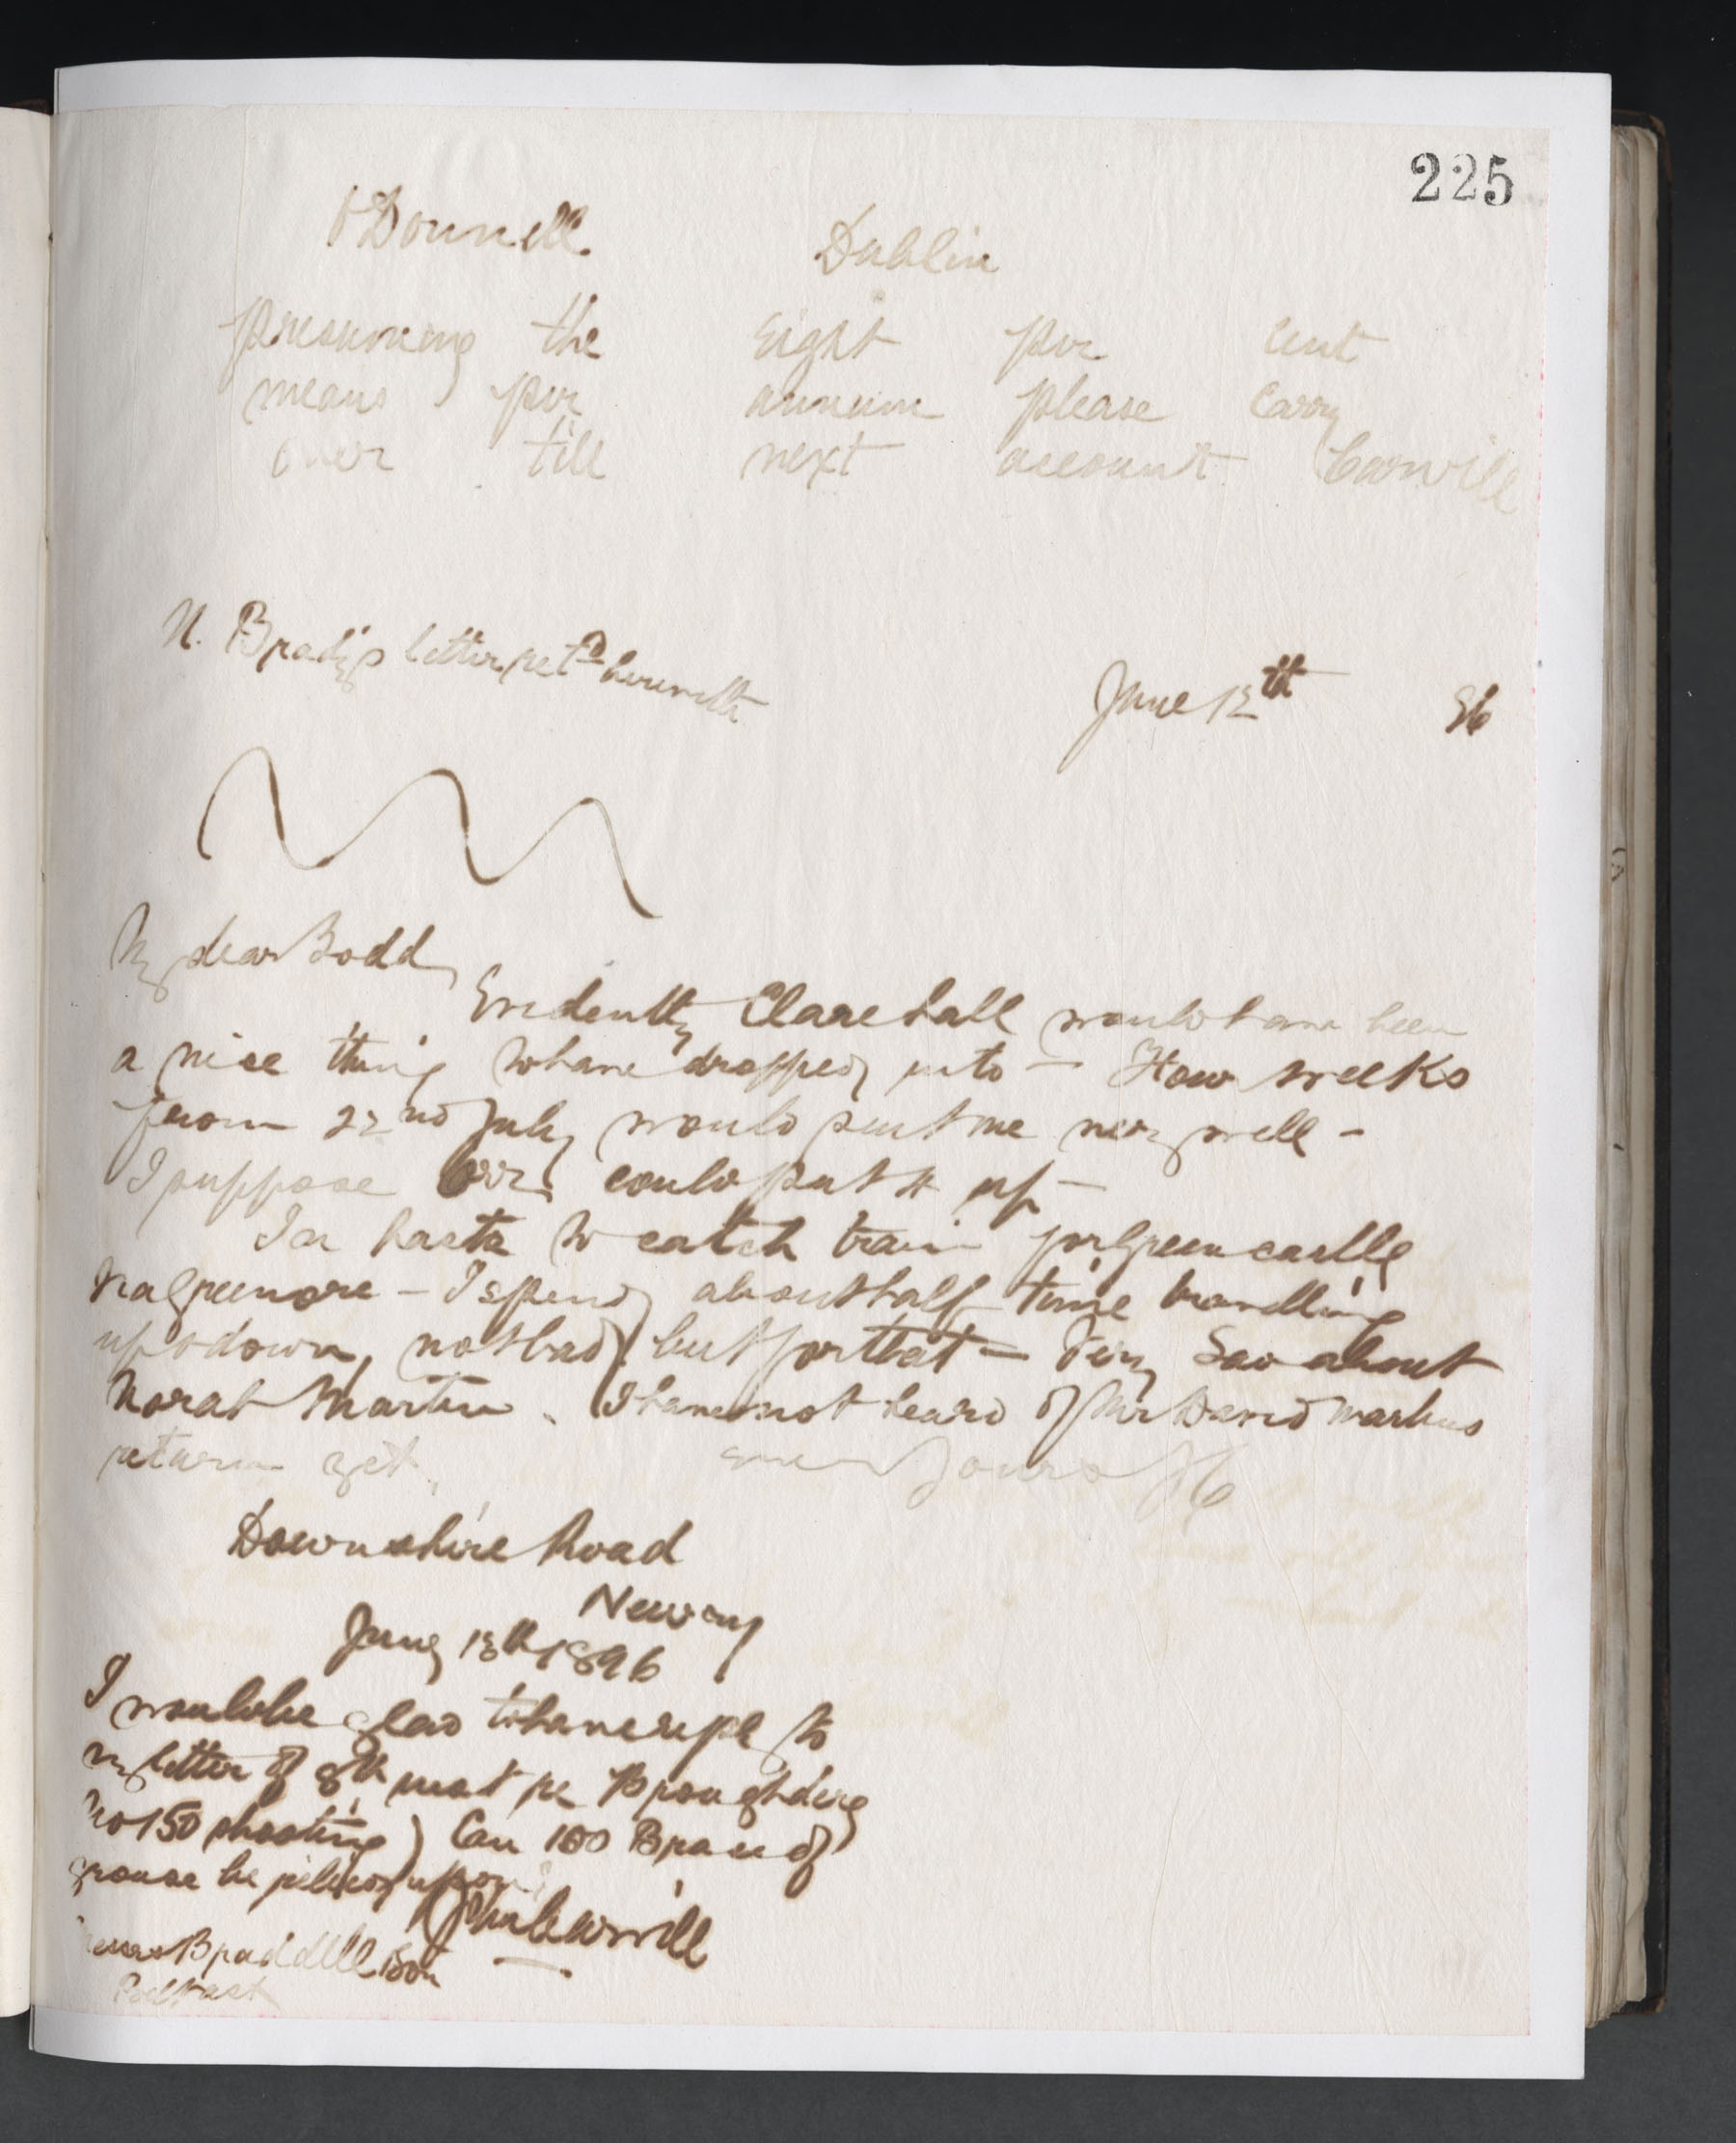 225
O'Donnell Dublin
Presuming the eight per cent
means per annum please carry
over till next account Carvill
N. Brady's letter retd herewith
June 12th 96
My dear Dodd
Evidently Clare hall would have been
a nice thing to have dropped into - Four weeks
from 22nd July would suit me very well -
I suppose Orr could put it up -
In haste to catch train for Greencastle
via Greenore - I spend about half time travelling
up & down, not bad but for that - Very Sad about
Norah Martin. I have not heard of Mr David
return yet. ever yours JC
Downshire Road
Newry
June 13th 1896
I would be glad to have reply to
my letter of 8th inst re Broughderg
No 150 shooting) Can 100 Brace of
grouse be relied upon?
John Carvill
Messrs Braddell & Son
Belfast